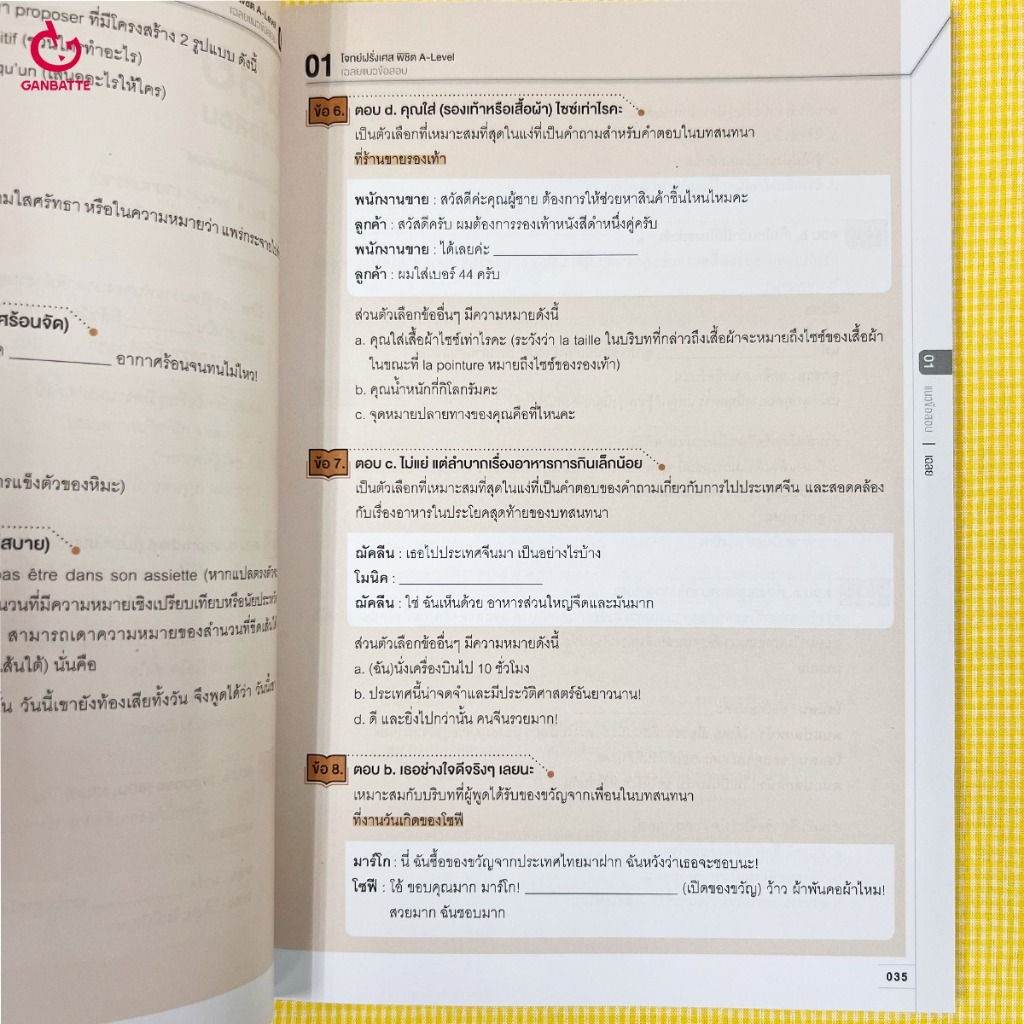 GANBATTE
proposer ที่มีโครงสร้าง 2 รูปแบบ ดังนี้
qu'un (เสนออะไรให้ใคร)
ามใสศรัทธา หรือในความหมายว่า แพร่กระจาย
ศร้อนจัด)
อากาศร้อนจนทนไม่ไหว!
ารแข็งตัวของหิมะ)
สบาย)
pas être dans son assiette (หากแปลตรงตัวจะ
นวนที่มีความหมายเชิงเปรียบเทียบหรือนัยประหวัด
สามารถเดาความหมายของสำนวนที่ขีดเส้นใต้
เส้นใต้) นั่นคือ
วันนี้เขายังท้องเสียทั้งวัน จึงพูดได้ว่า วันนี้เขา
01 โจทย์ฝรั่งเศส พิชิต A-Level
เฉลยแนวข้อสอบ
ข้อ 6. ตอบ d. คุณใส่ (รองเท้าหรือเสื้อผ้า) ไซซ์เท่าไรคะ
เป็นตัวเลือกที่เหมาะสมที่สุดในแง่ที่เป็นคำถามสำหรับคำตอบในบทสนทนา
ที่ร้านขายรองเท้า
พนักงานขาย : สวัสดีค่ะคุณผู้ชาย ต้องการให้ช่วยหาสินค้าชิ้นไหนไหมคะ
ลูกค้า : สวัสดีครับ ผมต้องการรองเท้าหนังสีดำหนึ่งคู่ครับ
พนักงานขาย : ได้เลยค่ะ ____________________
ลูกค้า : ผมใส่เบอร์ 44 ครับ
ส่วนตัวเลือกข้ออื่นๆ มีความหมายดังนี้
a. คุณใส่เสื้อผ้าไซซ์เท่าไรคะ (ระวังว่า la taille ในบริบทที่กล่าวถึงเสื้อผ้าจะหมายถึงไซซ์ของเสื้อผ้า
ในขณะที่ la pointure หมายถึงไซซ์ของรองเท้า)
b. คุณน้ำหนักกี่กิโลกรัมคะ
c. จุดหมายปลายทางของคุณคือที่ไหนคะ
ข้อ 7. ตอบ c. ไม่แย่ แต่ลำบากเรื่องอาหารการกินเล็กน้อย
เป็นตัวเลือกที่เหมาะสมที่สุดในแง่ที่เป็นคำตอบของคำถามเกี่ยวกับการไปประเทศจีน และสอดคล้อง
กับเรื่องอาหารในประโยคสุดท้ายของบทสนทนา
ฌัคลีน : เธอไปประเทศจีนมา เป็นอย่างไรบ้าง
โมนิค : ____________________
ฌัคลีน : ใช่ ฉันเห็นด้วย อาหารส่วนใหญ่จืดและมันมาก
ส่วนตัวเลือกข้ออื่นๆ มีความหมายดังนี้
a. (ฉัน)นั่งเครื่องบินไป 10 ชั่วโมง
b. ประเทศนี้น่าจดจำและมีประวัติศาสตร์อันยาวนาน!
d. ดี และยิ่งไปกว่านั้น คนจีนรวยมาก!
ข้อ 8. ตอบ b. เธอช่างใจดีจริงๆ เลยนะ
เหมาะสมกับบริบทที่ผู้พูดได้รับของขวัญจากเพื่อนในบทสนทนา
ที่งานวันเกิดของโซฟี
มาร์โก : นี่ ฉันซื้อของขวัญจากประเทศไทยมาฝาก ฉันหวังว่าเธอจะชอบนะ!
โซฟี : โอ้ ขอบคุณมาก มาร์โก! ____________________ (เปิดของขวัญ) ว้าว ผ้าพันคอผ้าไหม!
สวยมาก ฉันชอบมาก
01 แนวข้อสอบ | เฉลย
035